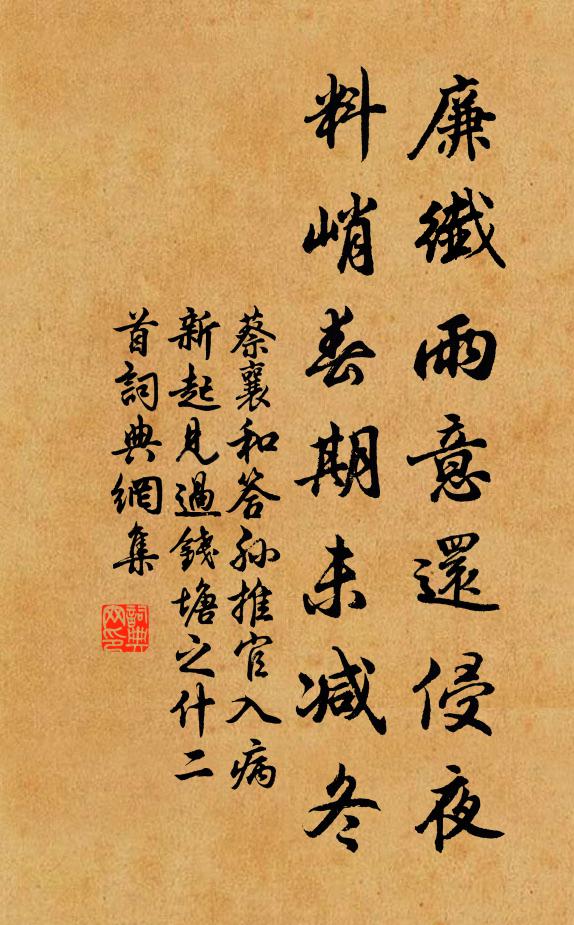 廉纖雨意還侵夜
料峭春期未减冬
蔡襄和答孙推官入病
新起見過錢塘之什二
首詞典網集
詞典网印